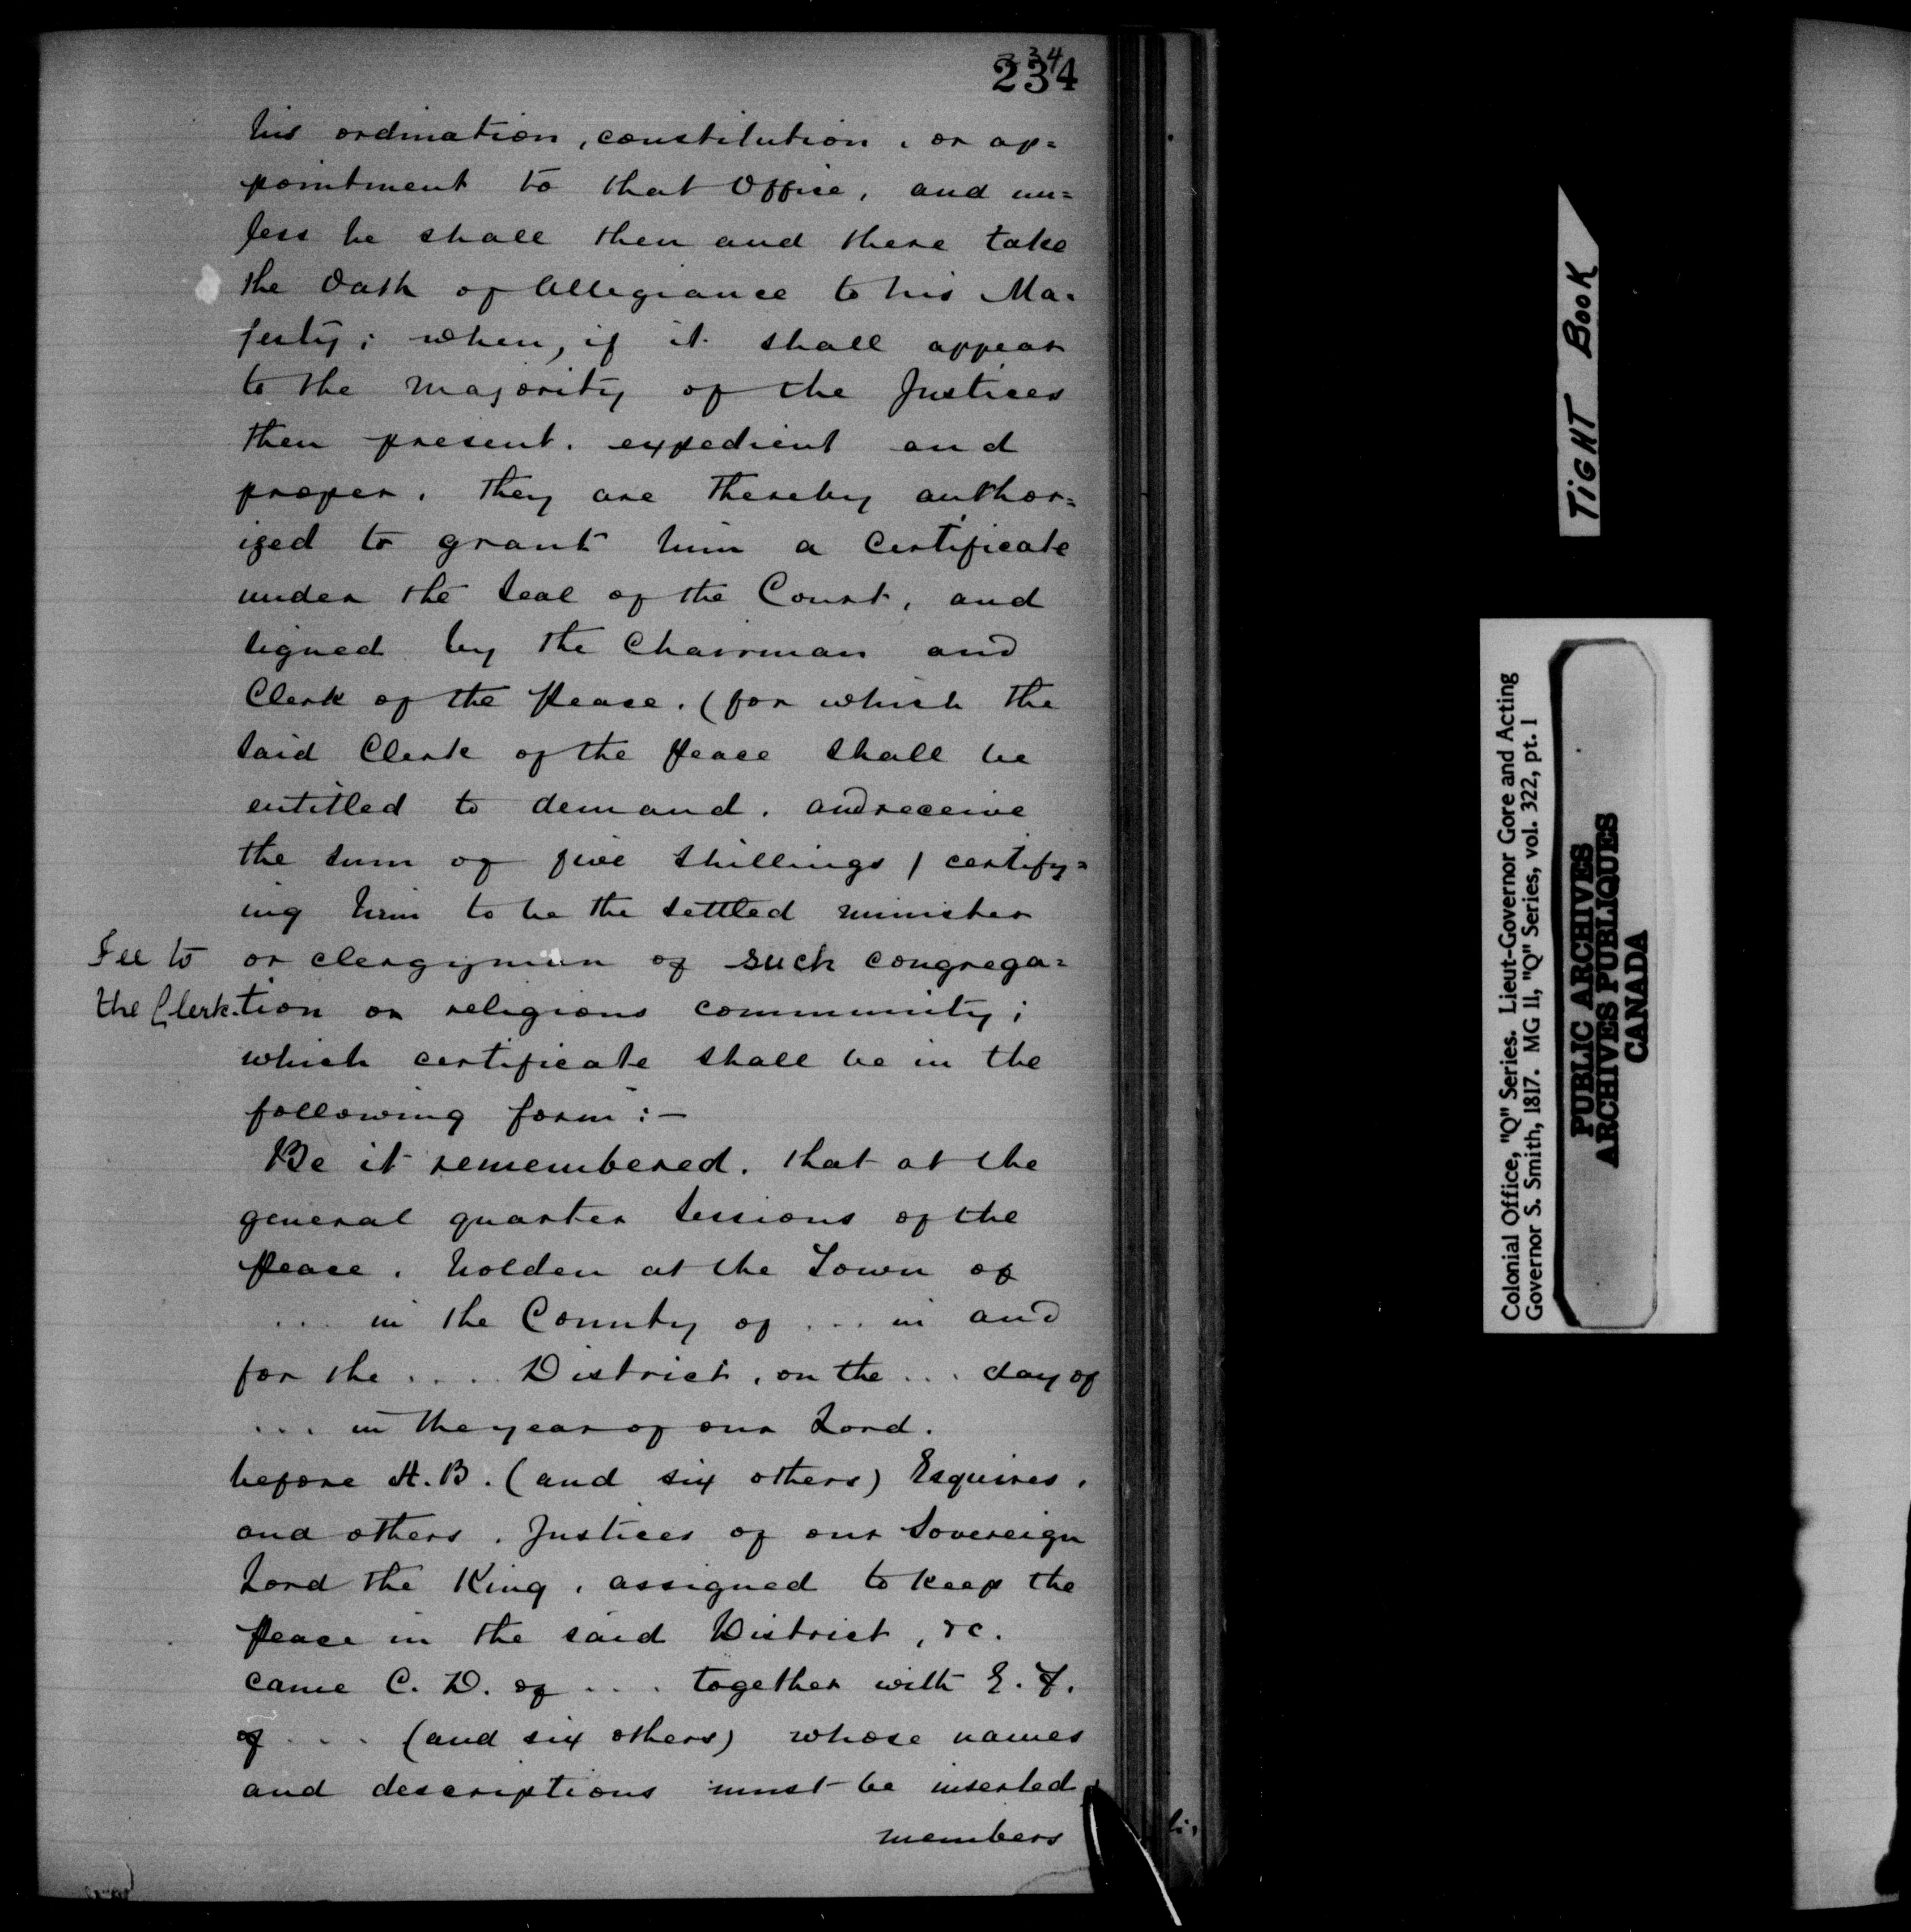 234
his ordination, constitution, or ap=
pointment to that Office, and un=
less he shall then and there take
the Oath of Allegiance to his Ma=
jesty; when, if it shall appear
to the majority of the Justices
then present, expedient and
proper, they are thereby author=
ized to grant him a Certificate
under the Seal of the Court, and
signed by the Chairman and
Clerk of the Peace, (for which the
said Clerk of the Peace shall be
entitled to demand, and receive
the sum of five shillings) certify=
ing him to be the settled minister
Fee to or clergyman of such congrega=
the Clerk. tion or religious community;
which certificate shall be in the
following form:—
Be it remembered, that at the
general quarter Sessions of the
Peace, holden at the Town of
... in the County of ... in and
for the .... District, on the ... day of
... in the year of our Lord.
before A. B. (and six others) Esquires,
and others, Justices of our Sovereign
Lord the King, assigned to keep the
Peace in the said District, &c.
came C. D. of .... together with E. F.
of .... (and six others) whose names
and descriptions must be inserted,
members
TIGHT BOOK
Colonial Office, "Q" Series. Lieut-Governor Gore and Acting
Governor S. Smith, 1817. MG 11, "Q" Series, vol. 322, pt. 1
PUBLIC ARCHIVES
ARCHIVES PUBLIQUES
CANADA